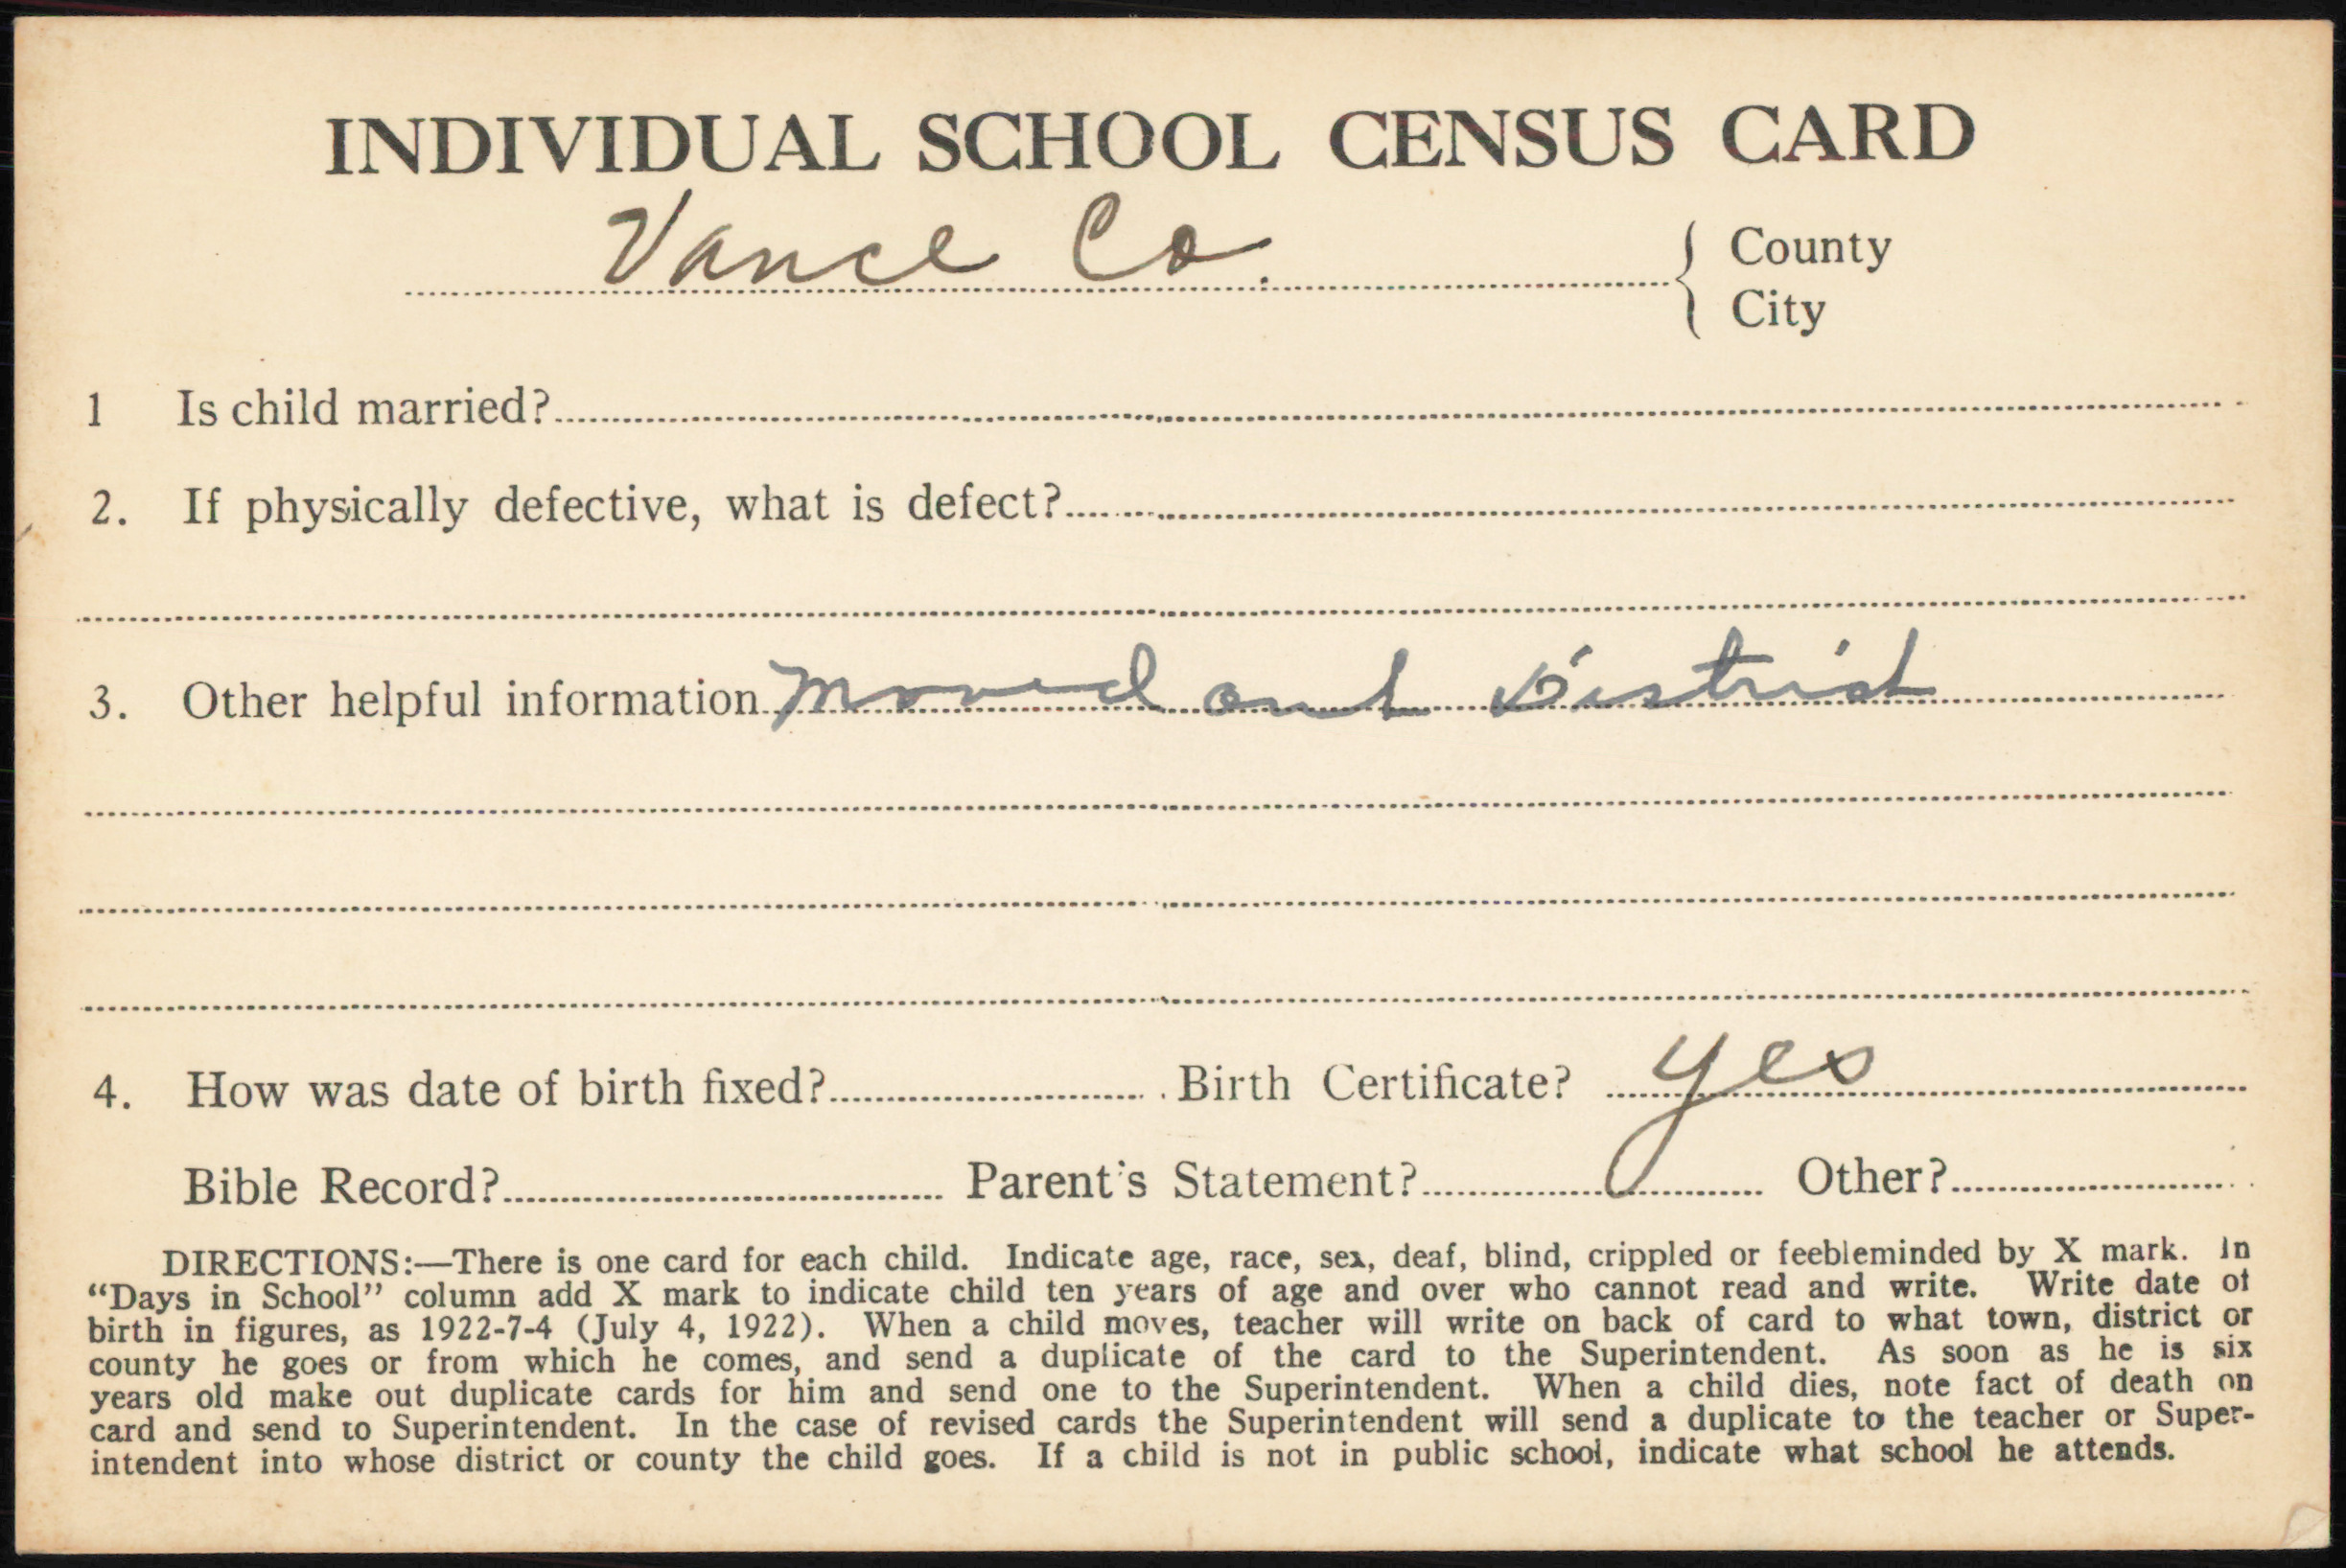 INDIVIDUAL SCHOOL CENSUS CARD
Vance Co. { County
City
1 Is child married?
2. If physically defective, what is defect?
3. Other helpful information Moved out District
4. How was date of birth fixed? Birth Certificate? yes
Bible Record? Parent's Statement? Other?
DIRECTIONS:—There is one card for each child. Indicate age, race, sex, deaf, blind, crippled or feebleminded by X mark. In
“Days in School” column add X mark to indicate child ten years of age and over who cannot read and write. Write date of
birth in figures, as 1922-7-4 (July 4, 1922). When a child moves, teacher will write on back of card to what town, district or
county he goes or from which he comes, and send a duplicate of the card to the Superintendent. As soon as he is six
years old make out duplicate cards for him and send one to the Superintendent. When a child dies, note fact of death on
card and send to Superintendent. In the case of revised cards the Superintendent will send a duplicate to the teacher or Super-
intendent into whose district or county the child goes. If a child is not in public school, indicate what school he attends.